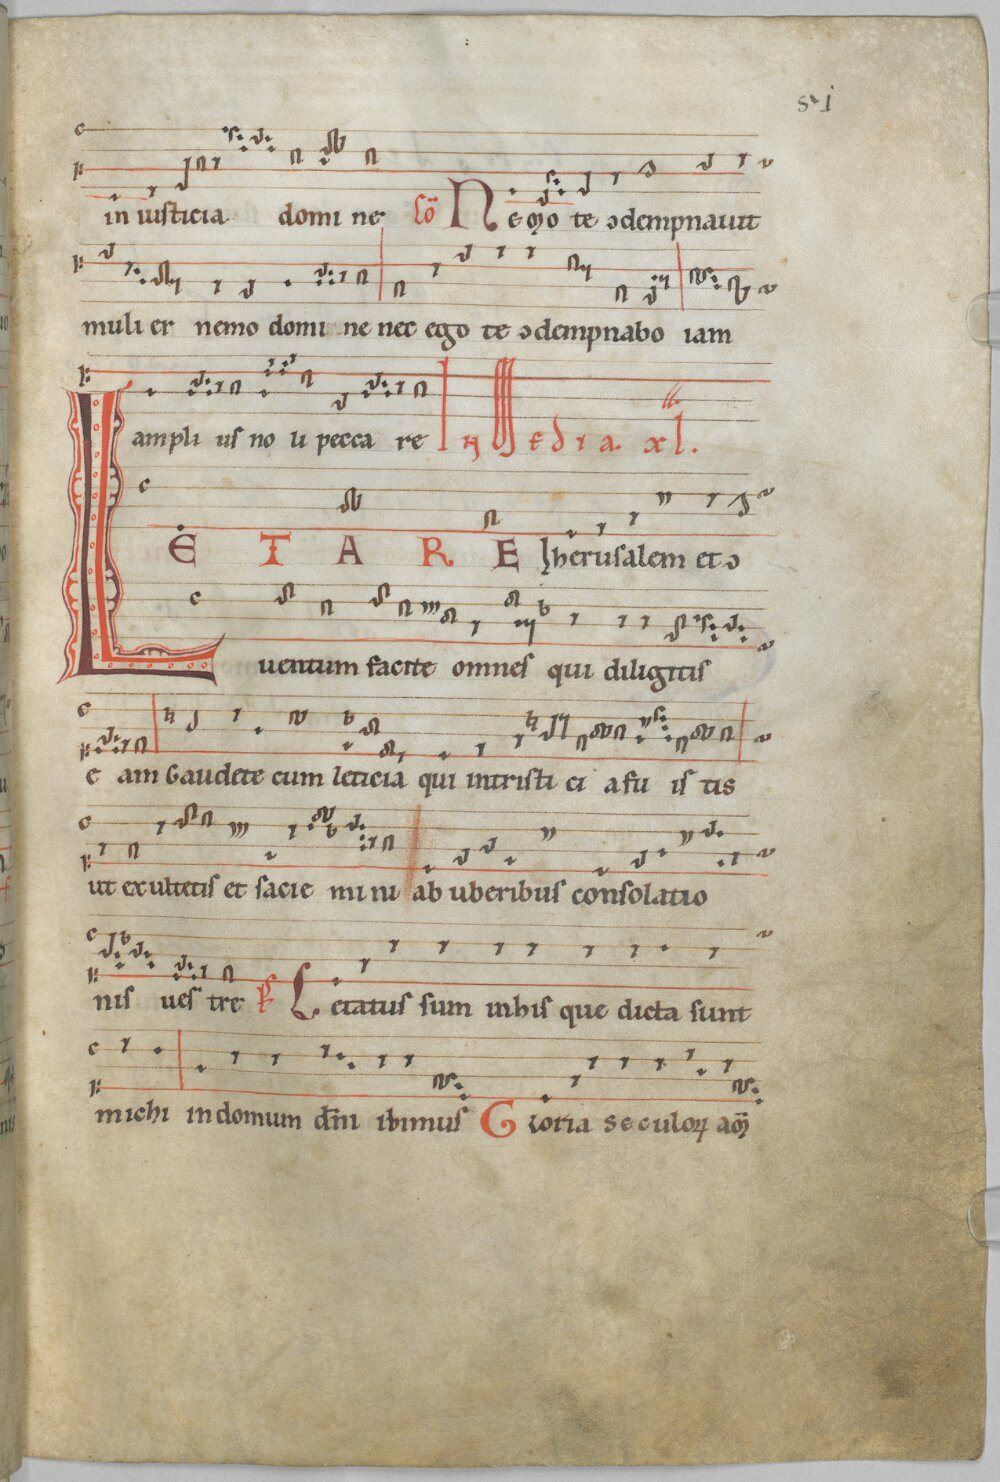 in iusticia domi ne Co̅ Nemo te ɔdempnauit
muli er nemo domi ne nec ego te ɔdempnabo iam
ampli us no li pecca re media. xl.
LETARE Iherusalem et ɔ
uentum facite omnes qui diligitis
e am Gaudete cum leticia qui intristi ci a fu is tis
ut exultetis et sacie mi ni ab uberibus consolatio
nis ues tre Letatus sum in his que dicta sunt
michi in domum dn̅i ibimus Gloria seculoꝝ am̅